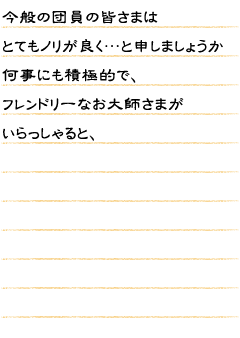 今般の団員の皆さまは
とてもノリが良く…と申しましょうか
何事にも積極的で、
フレンドリーなお大師さまが
いらっしゃると、